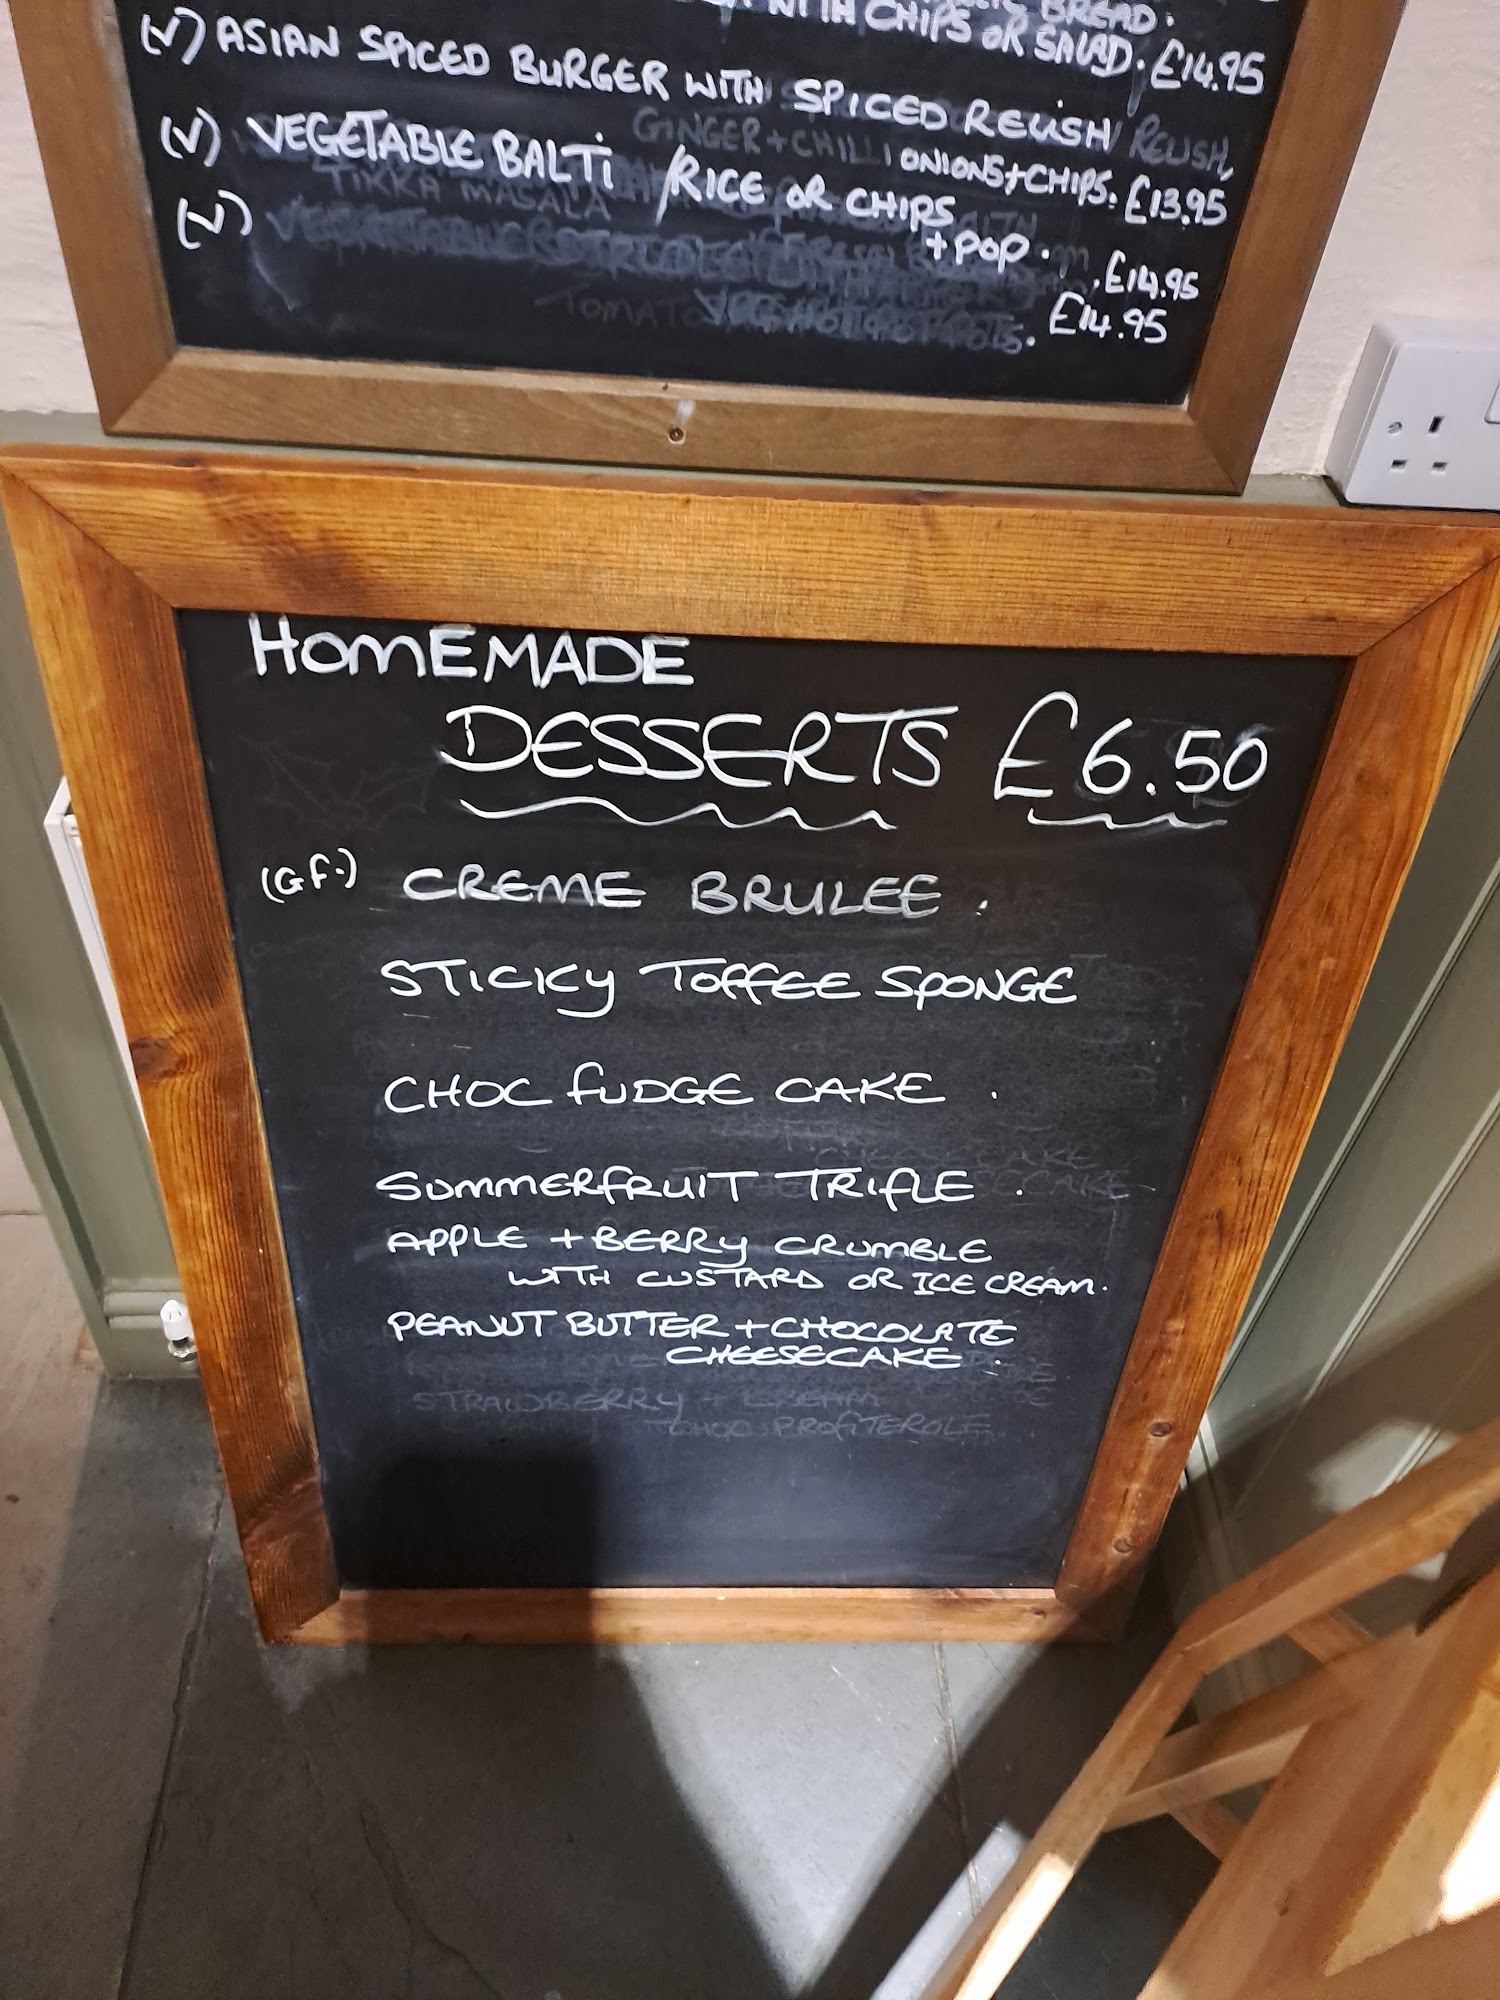 BREAD.
WITH CHIPS OR SALAD. £14.95
(V) ASIAN SPICED BURGER WITH SPICED RELISH RELISH,
GINGER + CHILLI ONIONS + CHIPS. £13.95
(V) VEGETABLE BALTI / RICE OR CHIPS
TIKKA MASALA
+ POP.
(V) £14.95
TOMATO £14.95
HOMEMADE
DESSERTS £6.50
(GF.) CREME BRULEE.
STICKY TOFFEE SPONGE
CHOC FUDGE CAKE.
CHEESECAKE
SUMMERFRUIT TRIFLE.
APPLE + BERRY CRUMBLE
WITH CUSTARD OR ICE CREAM.
PEANUT BUTTER + CHOCOLATE
CHEESECAKE.
STRAWBERRY + CREAM
CHOC PROFITEROLE